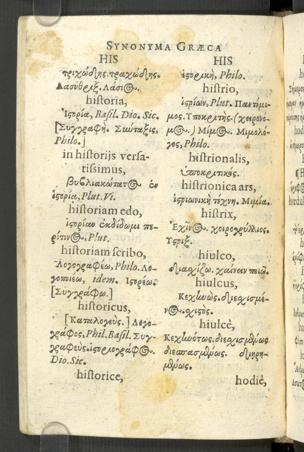 SYNONYMA GRÆCA
HIS
τριχώδης. τραχώδης.
Δασύθριξ. Λάσιος.
historia,
Ἱστορία, Basil. Dio. Sic.
[Συγγραφή. Σύνταξις.
Philo.]
in historijs versa-
tissimus,
ἱστορία, Plut. Vi.
historiam edo,
ἱστορίαν ἐκδίδωμι
Plut.
historiam scribo,
Λογογραφέω, Philo. Λο-
γοποιέω, idem. Ἱστορέω.
[Συγγράφω.]
historicus,
[Καταλογεύς.] Λογο-
γράφος, Phil. Basil. Συγ-
γραφεύς. ἱστοριογράφος.
Dio. Sic.
historicè,
HIS
ἱστορικῶς, Philo.
histrio,
ἱστρίων, Plut. Παντόμι-
μος. Ὑποκριτής. (χειρονό-
μος.) Μῖμος. Μιμολό-
γος, Philo.
histrionalis,
ὑποκριτικός.
histrionica ars,
ἱστριωνικὴ τέχνη. Μιμία.
histrix,
Ἐχῖνος. χοιρογρύλλιος.
Ὕστριξ.
hiulco,
διασχίζω. χαίνειν ποιῶ.
hiulcus,
Κεχηνώς. διεσχισμέ-
νος. σχιστός.
hiulcè,
Κεχηνότως. διεσχισμένως
διεσπασμένως. διῃρη-
μένως.
hodiè,